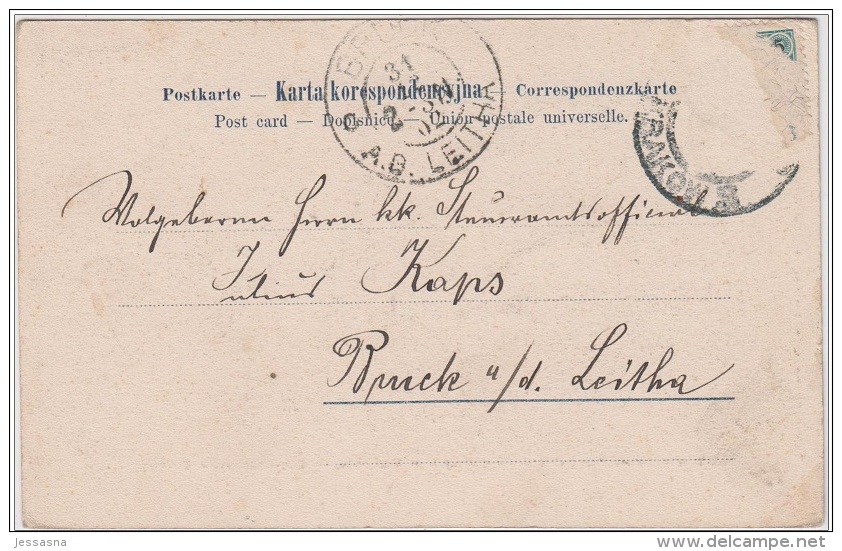 Postkarte — Karta korespondencyjna — Correspondenzkarte
Post card — Dopisnice — Union postale universelle.
BRUCK
31
2
02
A.D. LEITHA
KRAKOW
Wolgeboren Herrn kk. Steueramtsofficial
Julius Kaps
Bruck a/d. Leitha
jessasna
delcampe.net